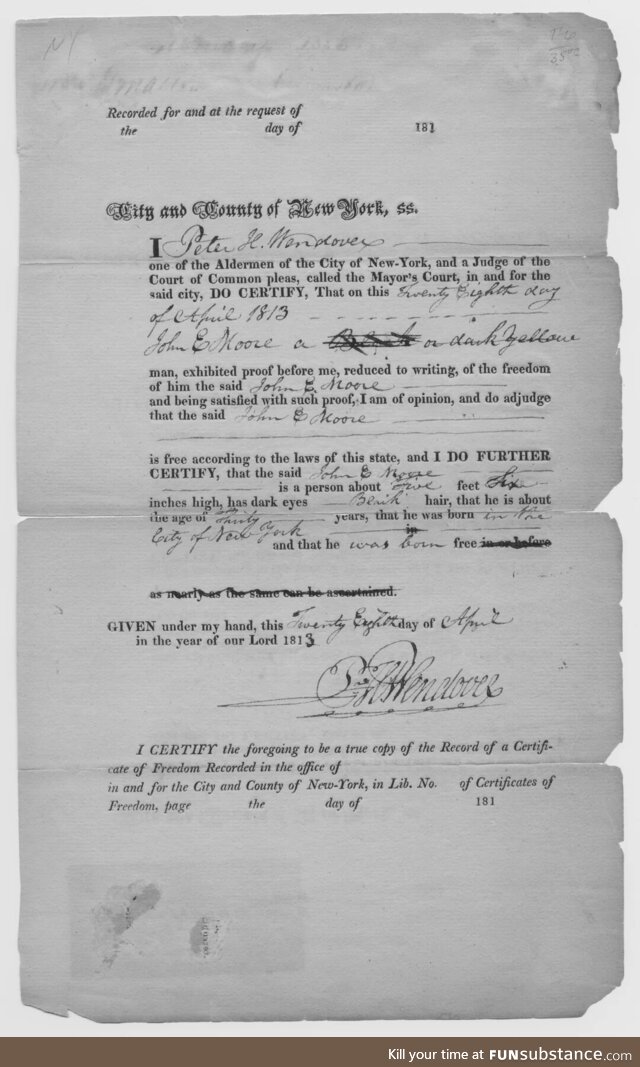 NY
Recorded for and at the request of
the day of 181
City and County of New York, ss.
I Peter H. Wendover
one of the Aldermen of the City of New-York, and a Judge of the
Court of Common pleas, called the Mayor's Court, in and for the
said city, DO CERTIFY, That on this Twenty Eighth day
of April 1813
John E Moore a Black or dark Yellow
man, exhibited proof before me, reduced to writing, of the freedom
of him the said John E. Moore
and being satisfied with such proof, I am of opinion, and do adjudge
that the said John E Moore
is free according to the laws of this state, and I DO FURTHER
CERTIFY, that the said John E Moore
is a person about Five feet Six
inches high, has dark eyes Black hair, that he is about
the age of Thirty years, that he was born in the
City of New York in
and that he was born free in or before
as nearly as the same can be ascertained.
GIVEN under my hand, this Twenty Eighth day of April
in the year of our Lord 1813
P H Wendover
I CERTIFY the foregoing to be a true copy of the Record of a Certifi-
cate of Freedom Recorded in the office of
in and for the City and County of New-York, in Lib. No. of Certificates of
Freedom, page the day of 181
Kill your time at FUNsubstance.com